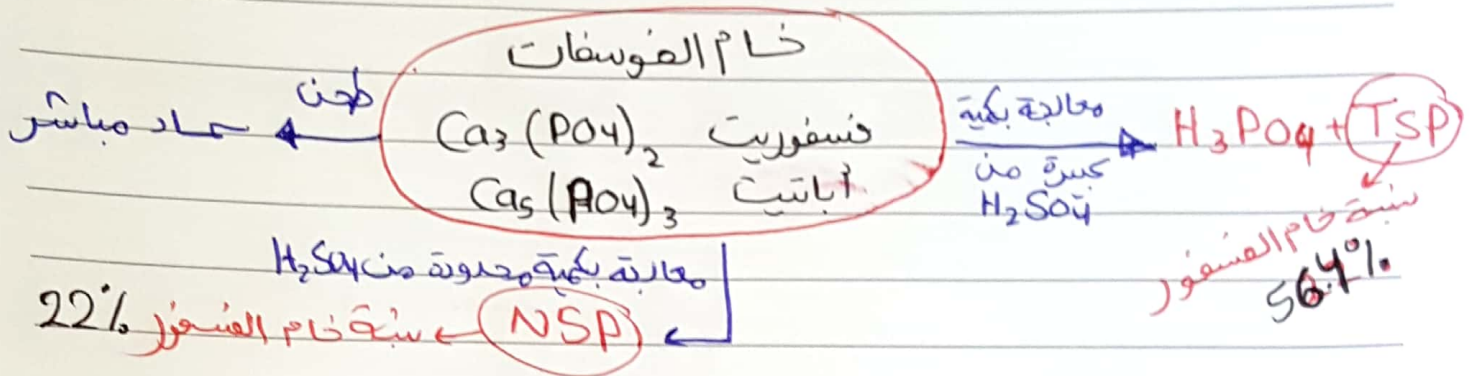 خام الفوسفات
فسفوريت Ca3(PO4)2
أباتيت Ca5(PO4)3
طحن
سماد مباشر
معالجة بكمية
كبيرة من
H2SO4
H3PO4 + TSP
نسبة خام الفسفور
56.4%
معالجة بكمية محدودة من H2SO4
NSP ← نسبة خام الفسفور 22%